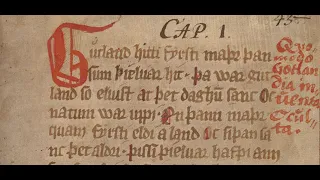 CAP. 1.
45
Gutland hitti fyrsti maþr þan
sum þieluar hit · þa war gut
land so eluist at þet daghum sanc oc
natum war uppi · En þann maþr
quam fyrsti eldi a land oc siþan sa
nc þet aldri · þissi þieluar hafþi ann
Quo
modo
Gotlan
dia in
uenta